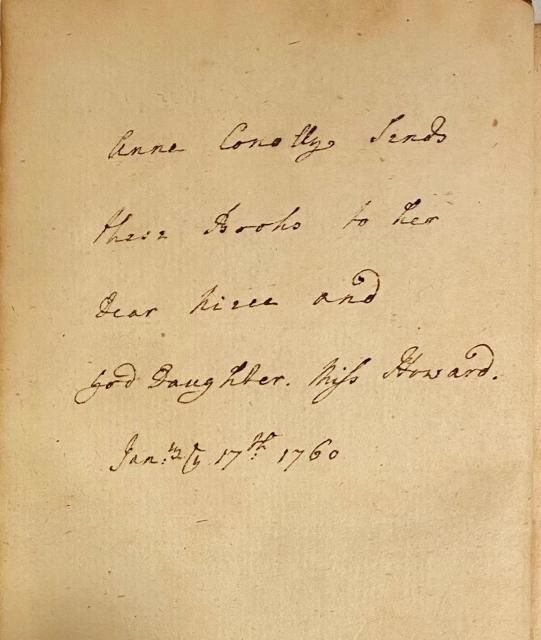 Anne Conolly Sends
these Books to her
Dear Niece and
God Daughter. Miss Howard.
Jan:ry ye 17th: 1760